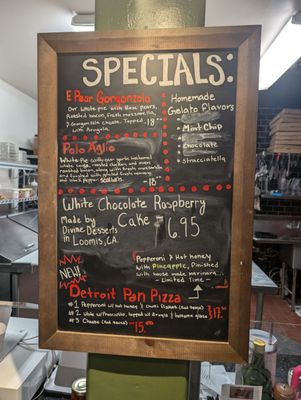 SPECIALS:
E Pear Gorgonzola
Our white pie with these pears,
Roasted bacon, fresh mozzarella,
& Gorgonzola cheese. Topped
with Arugula -18-
Homemade
Gelato Flavors
• Mint Chip
• Chocolate
• Stracciatella
Pollo Aglio
White Pie with our garlic
roasted chicken and
roasted bacon, along with fresh mozzarella
and black pepper -18-
White Chocolate Raspberry
Cake $6.95
Made by
Divine Desserts
in Loomis, CA.
Pepperoni & Hot honey
with Pineapple, Finished
with house made marinara...
- Limited Time -
NEW!
Detroit Pan Pizza
#1 Pepperoni w/ Hot honey &
#2 White w/ Prosciutto, topped w/ Arugula &
#3 Cheese (Red sauce) -15.